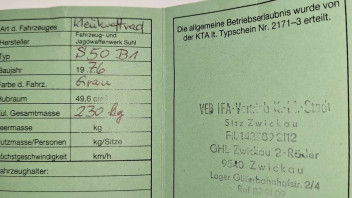 Art d. Fahrzeuges Kleinkraftrad
Hersteller Fahrzeug- und
Jagdwaffenwerk Suhl
Typ S 50 B1
Baujahr 1976
Farbe d. Fahrz. Grau
Hubraum 49,6 cm³
zul. Gesamtmasse 230 kg
Leermasse kg
Nutzmasse/Personen kg/Sitze
Höchstgeschwindigkeit km/h
Fahrzeughalter:
Die allgemeine Betriebserlaubnis wurde von
der KTA lt. Typschein Nr. 2171–3 erteilt.
VEB IFA-Vertrieb
Sitz Zwickau
GHL Zwickau 2-Räder
9540 Zwickau
Lager Güterbahnhofstr. 2/4